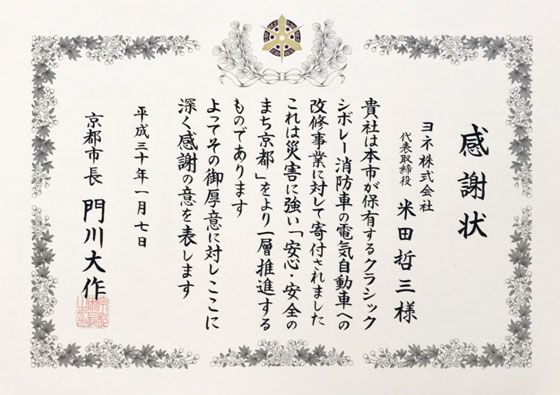 感謝状
ヨネ株式会社
代表取締役 米田哲三様
貴社は本市が保有するクラシック
シボレー消防車の電気自動車への
改修事業に対して寄付されました
これは災害に強い「安心・安全の
まち京都」をより一層推進する
ものであります
よってその御厚意に対しここに
深く感謝の意を表します
平成三十年一月七日
京都市長 門川大作